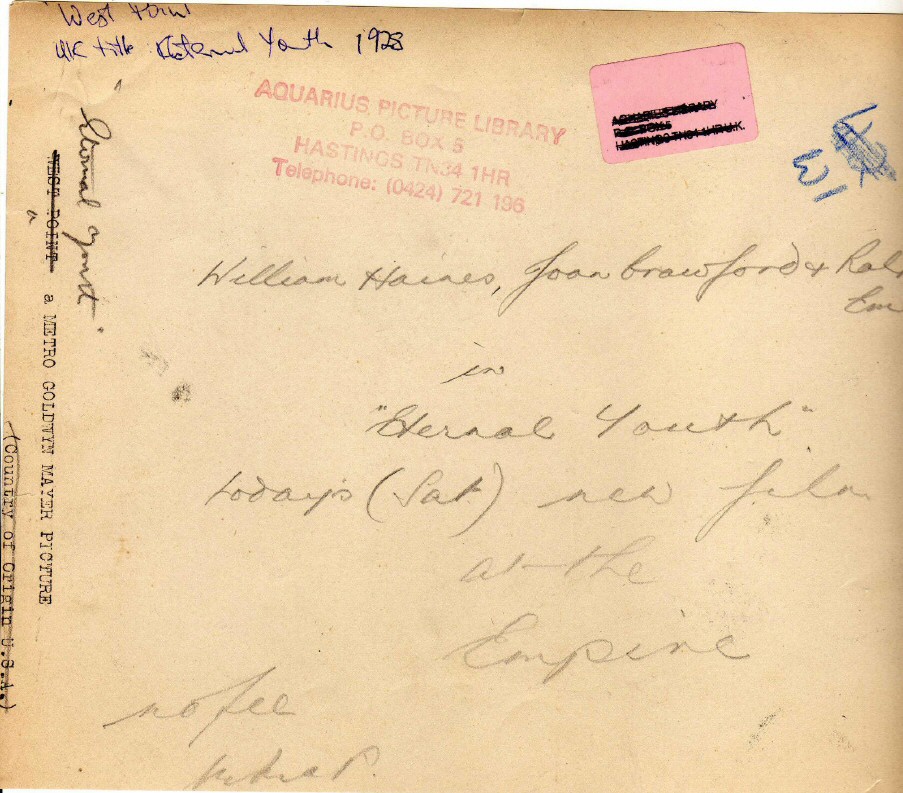 West Point
UK title Eternal Youth 1928
AQUARIUS PICTURE LIBRARY
P.O. BOX 5
HASTINGS TN34 1HR
Telephone: (0424) 721 196
AQUARIUS LIBRARY
P.O. BOX 5
HASTINGS TN34 1HR U.K.
"Eternal Youth"
WEST POINT a METRO GOLDWYN MAYER PICTURE
(Country of Origin U.S.A.)
William Haines, Joan Crawford &
in
"Eternal Youth"
today's (Sat) new film
at the
Empire
no fee